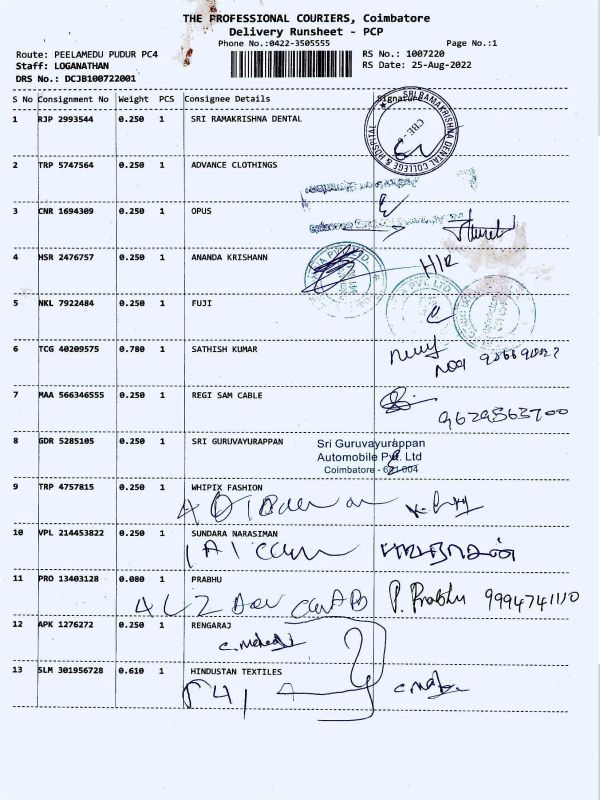 THE PROFESSIONAL COURIERS, Coimbatore
Delivery Runsheet - PCP
Phone No.:0422-3505555
Page No.:1
Route: PEELAMEDU PUDUR PC4
RS No.: 1007220
Staff: LOGANATHAN
RS Date: 25-Aug-2022
DRS No.: DCJB100722001
S No Consignment No Weight PCS Consignee Details Signature
1 RJP 2993544 0.250 1 SRI RAMAKRISHNA DENTAL
SRI RAMAKRISHNA DENTAL COLLEGE & HOSPITAL
CBE -
2 TRP 5747564 0.250 1 ADVANCE CLOTHINGS
3 CNR 1694309 0.250 1 OPUS
4 HSR 2476757 0.250 1 ANANDA KRISHANN
H/R
5 NKL 7922484 0.250 1 FUJI
6 TCG 40209575 0.780 1 SATHISH KUMAR
7 MAA 566346555 0.250 1 REGI SAM CABLE
9629863700
8 GDR 5285105 0.250 1 SRI GURUVAYURAPPAN
Sri Guruvayurappan
Automobile Pvt. Ltd
Coimbatore - 641 004
9 TRP 4757815 0.250 1 WHIPIX FASHION
10 VPL 214453822 0.250 1 SUNDARA NARASIMAN
11 PRO 13403128 0.080 1 PRABHU
P. Prabhu 9994741110
12 APK 1276272 0.250 1 RENGARAJ
13 SLM 301956728 0.610 1 HINDUSTAN TEXTILES